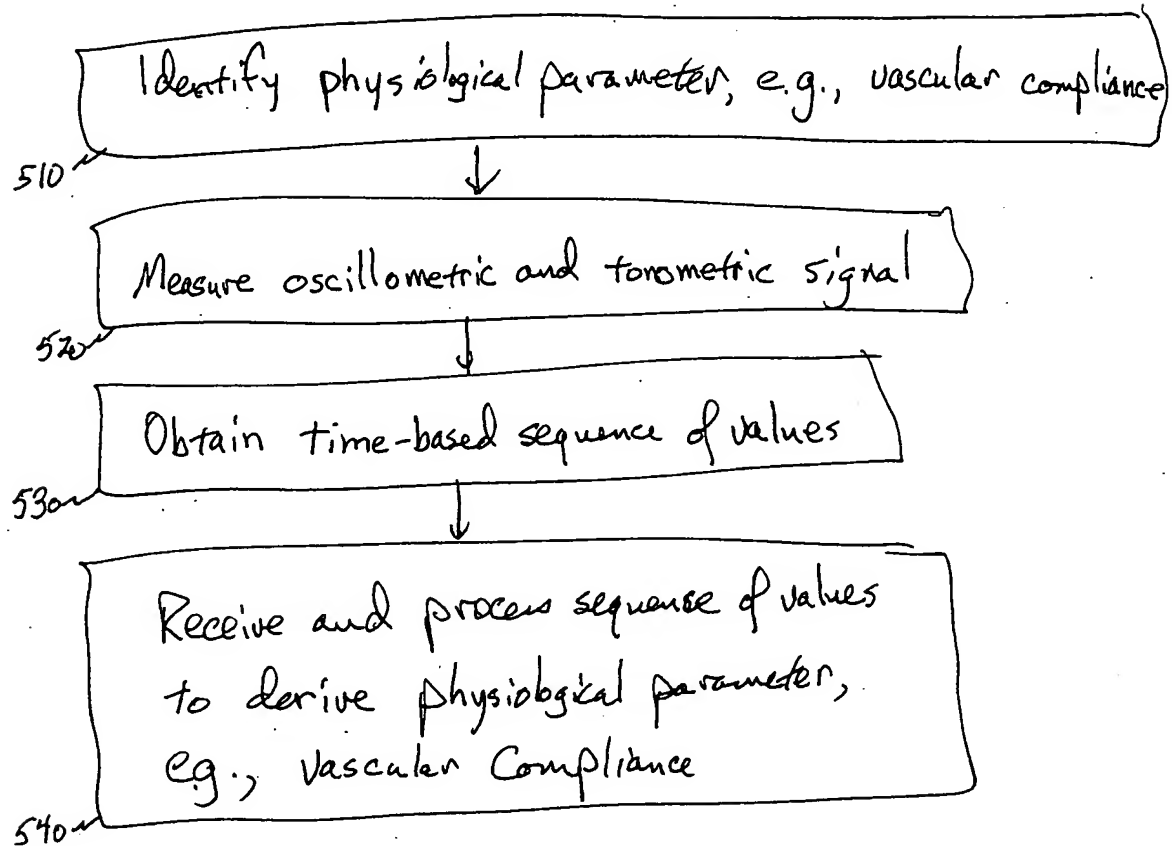 Identify physiological parameter, e.g., vascular compliance
510
Measure oscillometric and tonometric signal
520
Obtain time-based sequence of values
530
Receive and process sequence of values
to derive physiological parameter,
e.g., Vascular Compliance
540